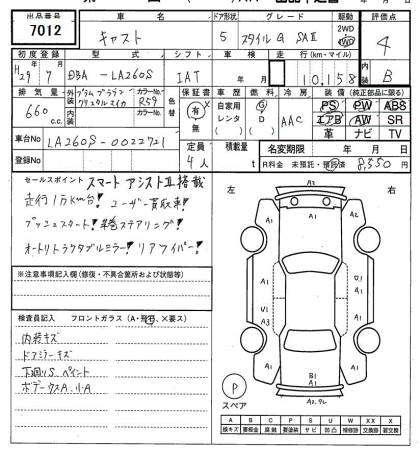 出品番号 車名 ドア形状 グレード 駆動 評価点
7012 キャスト 5 スタイル G SAⅡ 2WD 4WD 4
初度登録 型式 シフト 車検 走行(km・マイル) 内装
H29年7月 DBA-LA260S IAT 年 月 10,158 B
排気量 外装 カラーNo. 色替 保証書 車歴 燃料 冷房 装備(純正部品に限る)
660 c.c. 内装 R59 有・無 自家用 レンタ G D AAC PS PW ABS
エアB AW SR
革 ナビ TV
車台No LA260S-0022721 定員 積載量 名変期限 年 月 日
登録No. 4人 t R料金 未預託・預託済 8,350円
セールスポイント スマートアシストⅡ搭載
走行1万km台! ユーザー買取車!
プッシュスタート! 革巻ステアリング!
オートリトラクタブルミラー! リアワイパー!
※注意事項記入欄(修復・不具合箇所および状態等)
検査員記入 フロントガラス(A・飛石、X要ス)
内装キズ
ドアミラーキズ
下回りS ペイント
ボデーウスA、小A
左 右
A2
A1
A1 A1
A1 U1
A1
U1 A1
A3
A1 B1 A1
A1
P
スペア
A B C P S U W X XX
線キズ 要板金 腐蝕 要塗装 サビ 凹凸 補修跡 要交換 要交換